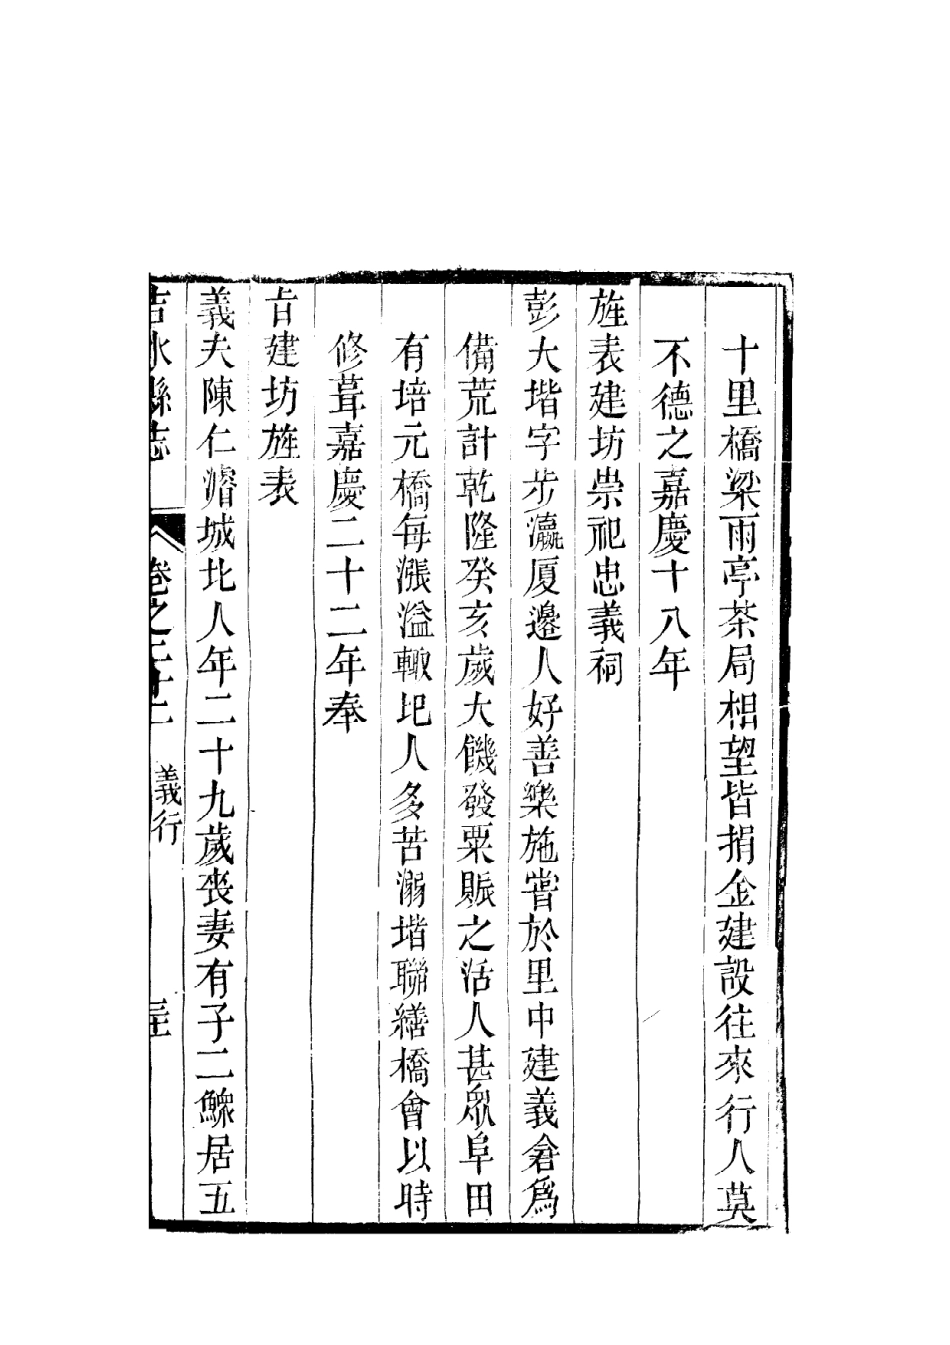 十里橋梁雨亭茶局相望皆捐金建設往來行人莫
不德之嘉慶十八年
旌表建坊崇祀忠義祠
彭大堦字步瀛厦邊人好善樂施嘗於里中建義倉爲
備荒計乾隆癸亥歲大饑發粟賑之活人甚眾阜田
有培元橋每漲溢輙圯人多苦溺堦聯繕橋會以時
修葺嘉慶二十二年奉
㫖建坊旌表
義夫陳仁濬城北人年二十九歲丧妻有子二鰥居五
吉水縣志 卷之三十二 義行